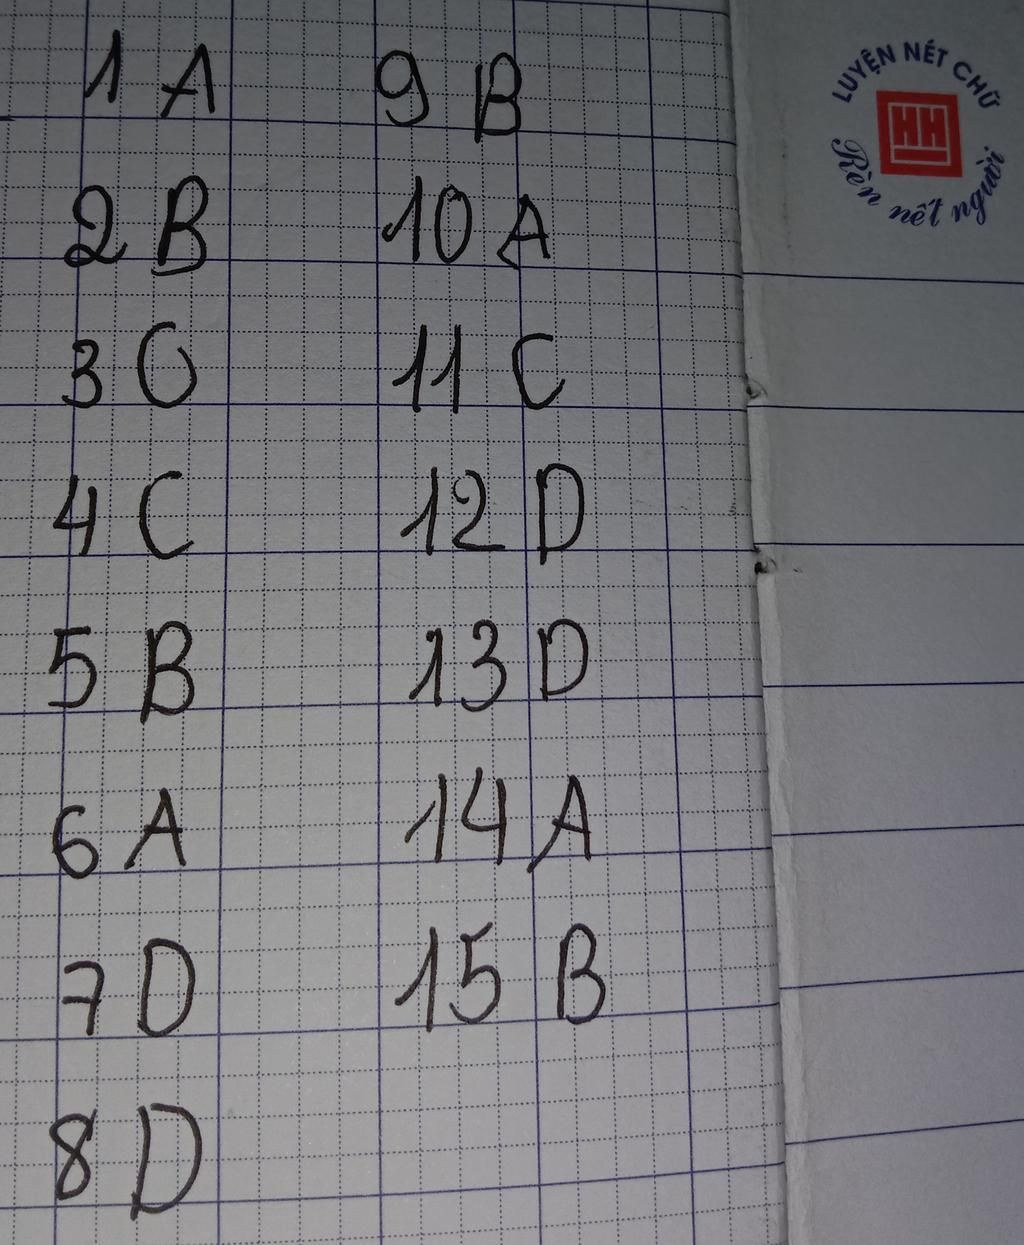 1 A
2 B
3 O
4 C
5 B
6 A
7 D
8 D
9 B
10 A
11 C
12 D
13 D
14 A
15 B
LUYỆN NÉT CHỮ
HH
Rèn nết người